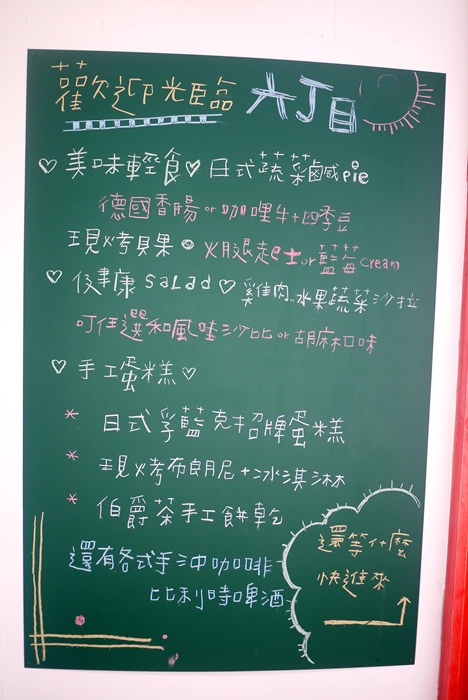 歡迎光臨 六丁目
♡ 美味輕食 ♡ 日式蔬菜鹹pie
德國香腸or咖哩牛+四季豆
現烤貝果 • 火腿起士or藍莓cream
♡ 健康salad ♡ 雞肉..水果蔬菜沙拉
可任選和風哇沙比or胡麻口味
♡ 手工蛋糕 ♡
* 日式孚藍克招牌蛋糕
* 現烤布朗尼+冰淇淋
* 伯爵茶手工餅乾
還有各式手沖咖啡
比利時啤酒
還等什麼
快進來